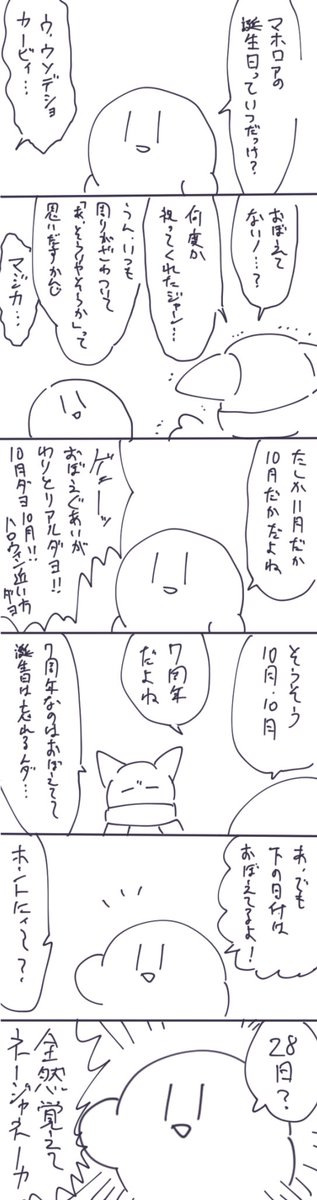 マホロアの
誕生日っていつだっけ?
ウ、ウソデショ
カービィ…
おぼえて
ないノ…?
何度か
祝ってくれたジャン…
うん、いつも
周りがざわついて
「あ、そういやそうか」って
思いだすかんじ
マジカ…
たしか11月だか
10月だかだよね
ゲェーッ
おぼえぐあいが
わりとリアルダヨ!!
10月ダヨ10月!!
ハロウィン近い方
ダヨ
そうそう
10月・10月
7周年
だよね
7周年なのはおぼえてて
誕生日は忘れるんダ…
あ、でも
下の日付は
おぼえてるよ!
ホントにィ~?
28日?
全然覚えて
ネージャネーカ